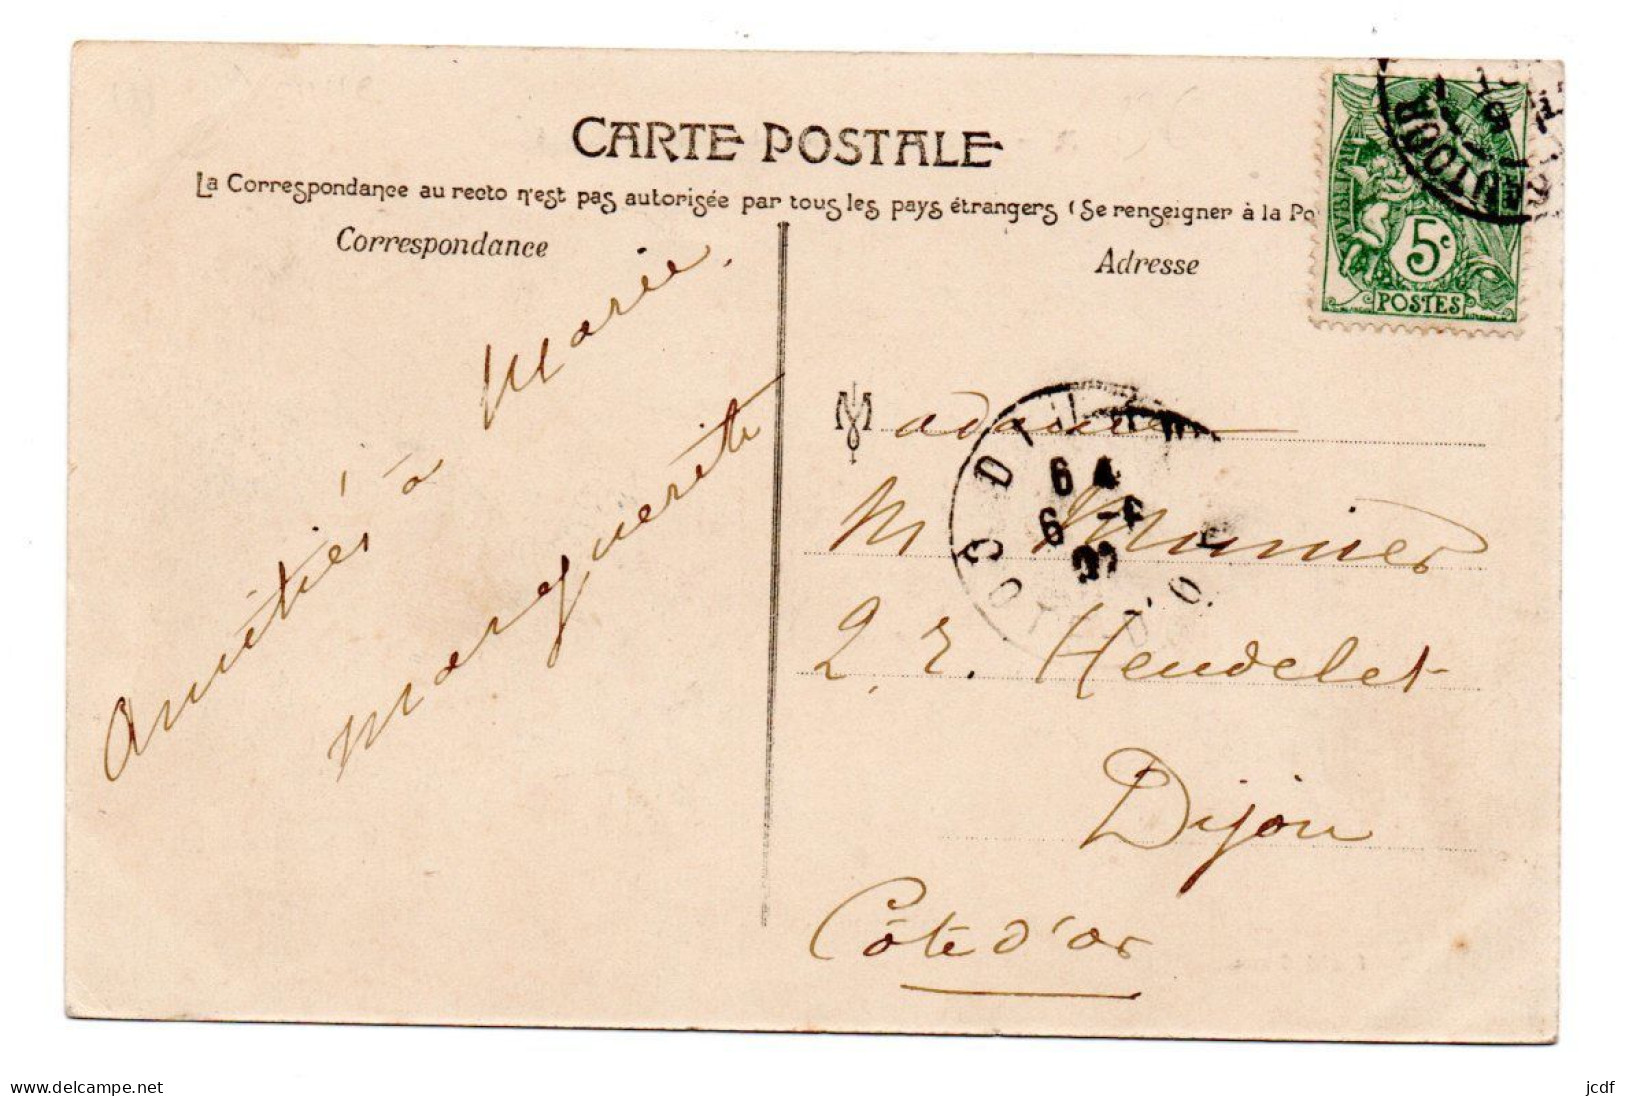 CARTE POSTALE
La Correspondance au recto n'est pas autorisée par tous les pays étrangers (Se renseigner à la Po
Correspondance
Adresse
5c
POSTES
Amitiés à
Marie.
Marguerite
Madame
M Munier
2, r. Heudelet
Dijon
Côte d'or
DIJON
COTE-D'OR
6 4
6 -6
www.delcampe.net
jcdf